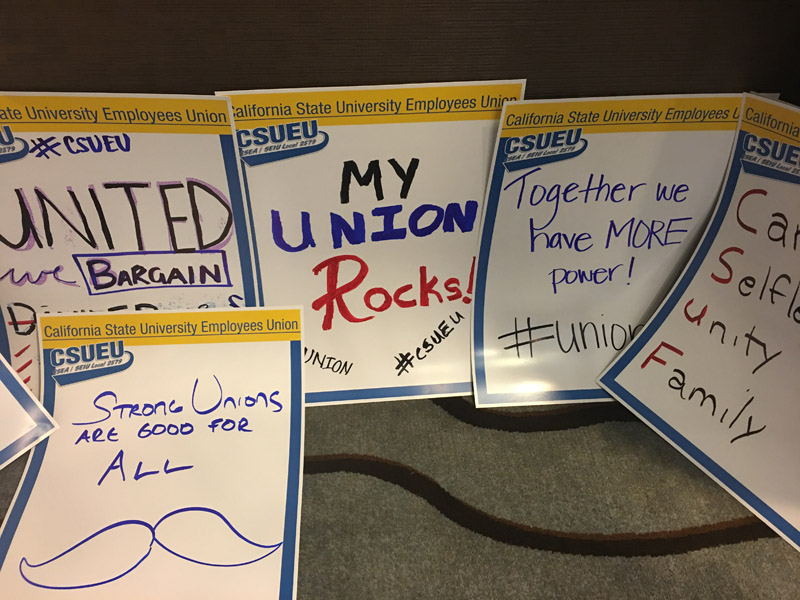 ate University Employees Union
#CSUEU
UNITED
we BARGAIN
California State University Employees Union
CSUEU
CSEA / SEIU Local 2579
MY
UNION
Rocks!
UNION
#CSUEU
California State University Employees U
CSUEU
CSEA / SEIU Local 2579
Together we
have MORE
power!
#union
California
CSUEU
CSEA / SEIU Local 2579
Car
Selfle
Unity
Family
California State University Employees Union
CSUEU
CSEA / SEIU Local 2579
STRONG UNIONS
ARE GOOD FOR
ALL